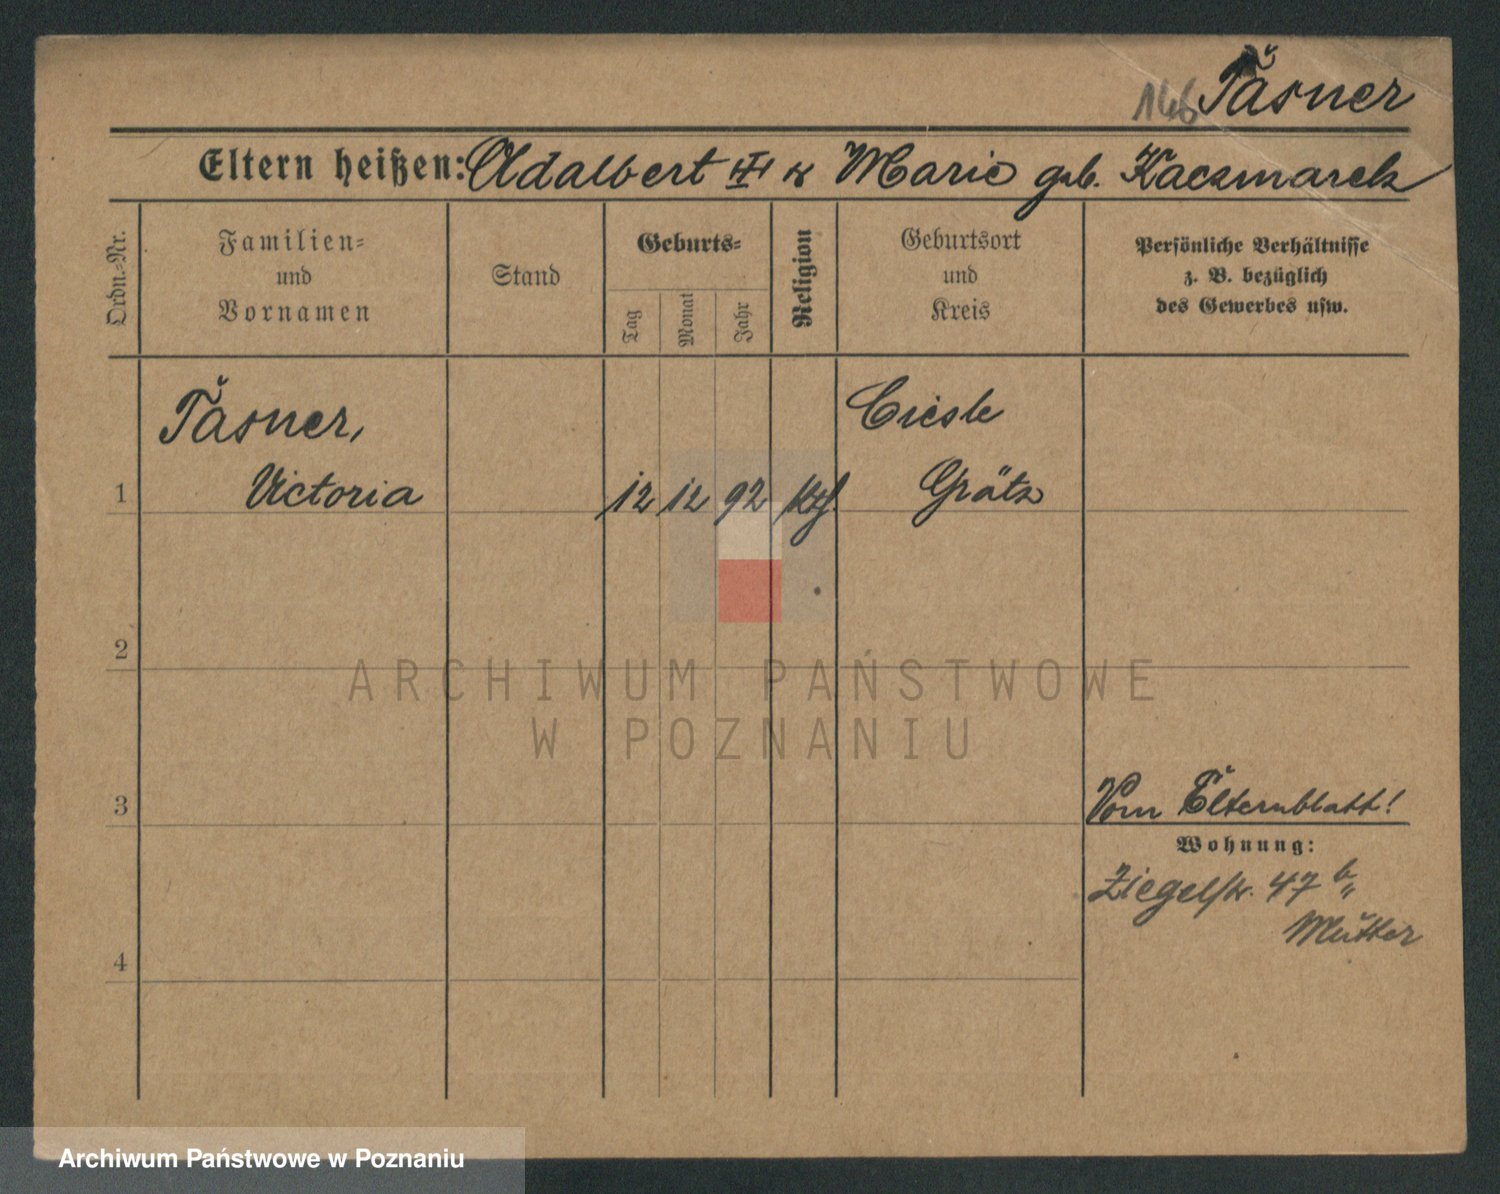 146 Täsner
Eltern heißen: Adalbert III u Marie geb. Kaczmarek
Ordn.-Nr.
Familien-
und
Vornamen
Stand
Geburts-
Tag
Monat
Jahr
Religion
Geburtsort
und
Kreis
Persönliche Verhältnisse
z. B. bezüglich
des Gewerbes usw.
Täsner,
Ciesle
1 Victoria 12 12 92 kth. Grätz
2
ARCHIWUM PAŃSTWOWE
W POZNANIU
3
Vom Elternblatt!
Wohnung:
Ziegelstr. 47 b
Mutter
4
Archiwum Państwowe w Poznaniu